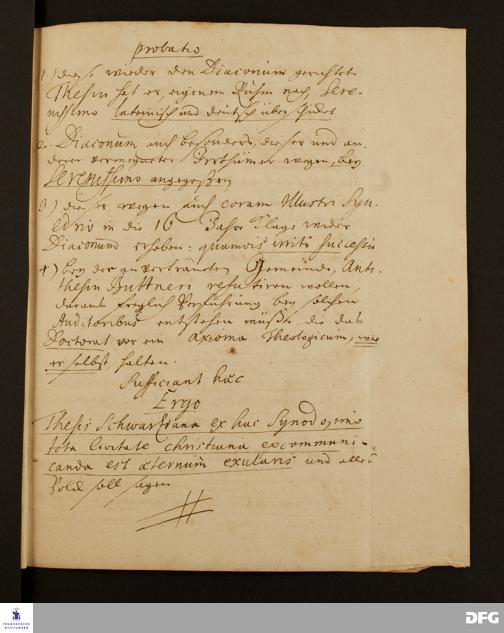 probatio
1.) diese wieder den Diaconum gerichtete
Thesin hat er, eigenem Ruhm nach, Sere-
nissimo lateinisch und deutsch überschicket
2. Diaconum auch besonders, dieser und an-
derer vermeynter Irrthümer wegen, bey
Serenissimo angegeben
3) dieser wegen auch coram Illustri Syn-
edrio in die 16 Jahr Klage wieder
Diaconum erhoben: quamvis irrito successu
4.) bey der anvertrauten Gemeinde, Anti-
thesin Buttneri refutiren wollen,
daraus freylich Verführung bey solchen
Auditoribus entstehen müste, die das
Doctorat vor ein axioma Theologicum, wie
er selbst, halten.
Sufficiant haec
Ergo
Thesis Schwartziana ex hac Synodo, imo
tota Civitate christiana excommuni-
canda est aeternum exularis und alles
Volck soll sagen
FRANCKESCHE
STIFTUNGEN
DFG